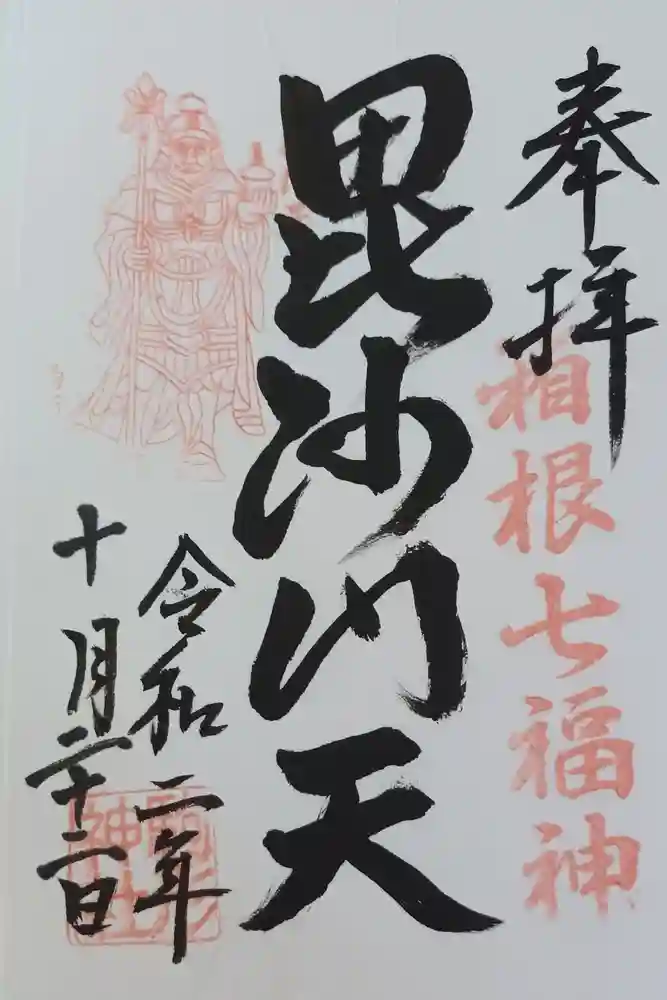 奉拝
箱根七福神
毘沙门天
令和二年
十月二十二日
駒形神社